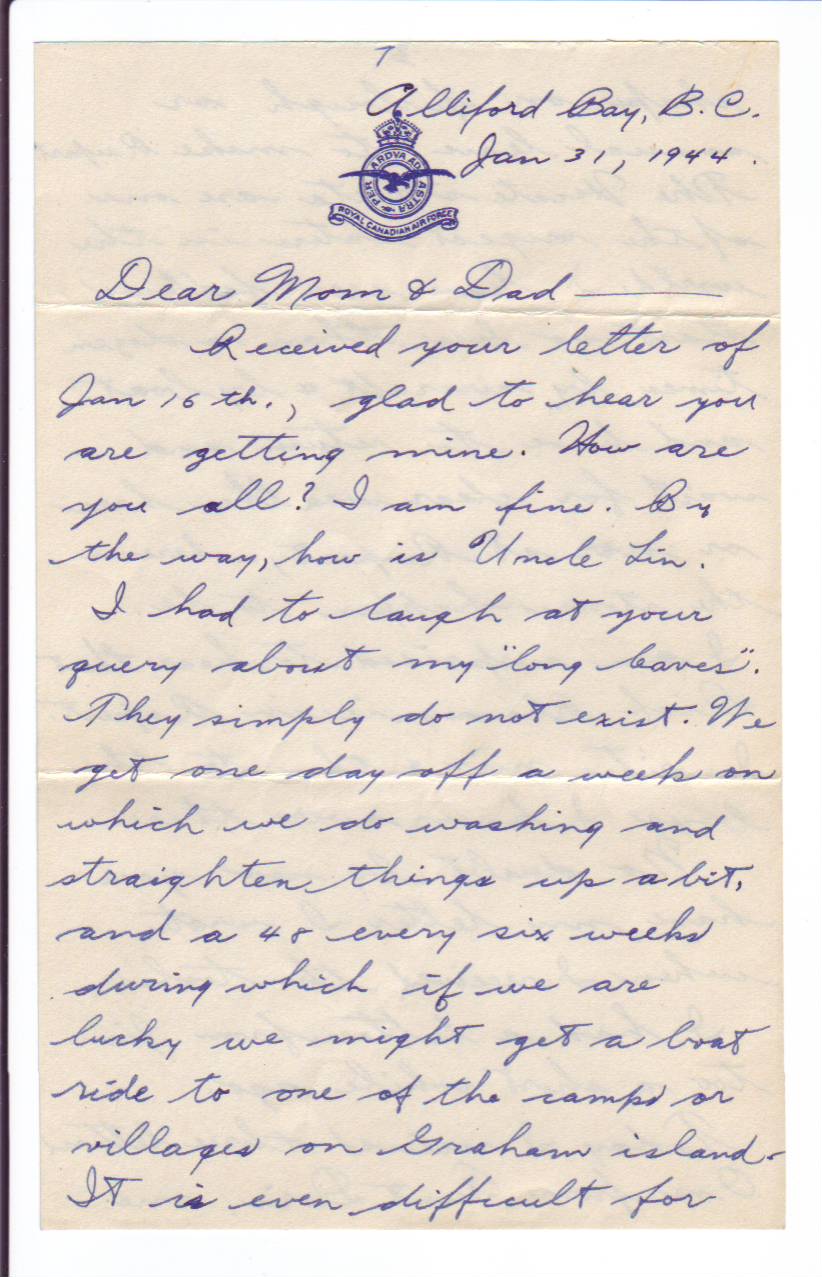 Alliford Bay, B.C.
Jan 31, 1944.
PER ARDVA AD ASTRA
ROYAL CANADIAN AIR FORCE
Dear Mom & Dad ———
Received your letter of
Jan 16 th., glad to hear you
are getting mine. How are
you all? I am fine. By
the way, how is Uncle Lin.
I had to laugh at your
query about my "long leaves".
They simply do not exist. We
get one day off a week on
which we do washing and
straighten things up a bit,
and a 48 every six weeks
during which if we are
lucky we might get a boat
ride to one of the camps or
villages on Graham island.
It is even difficult for